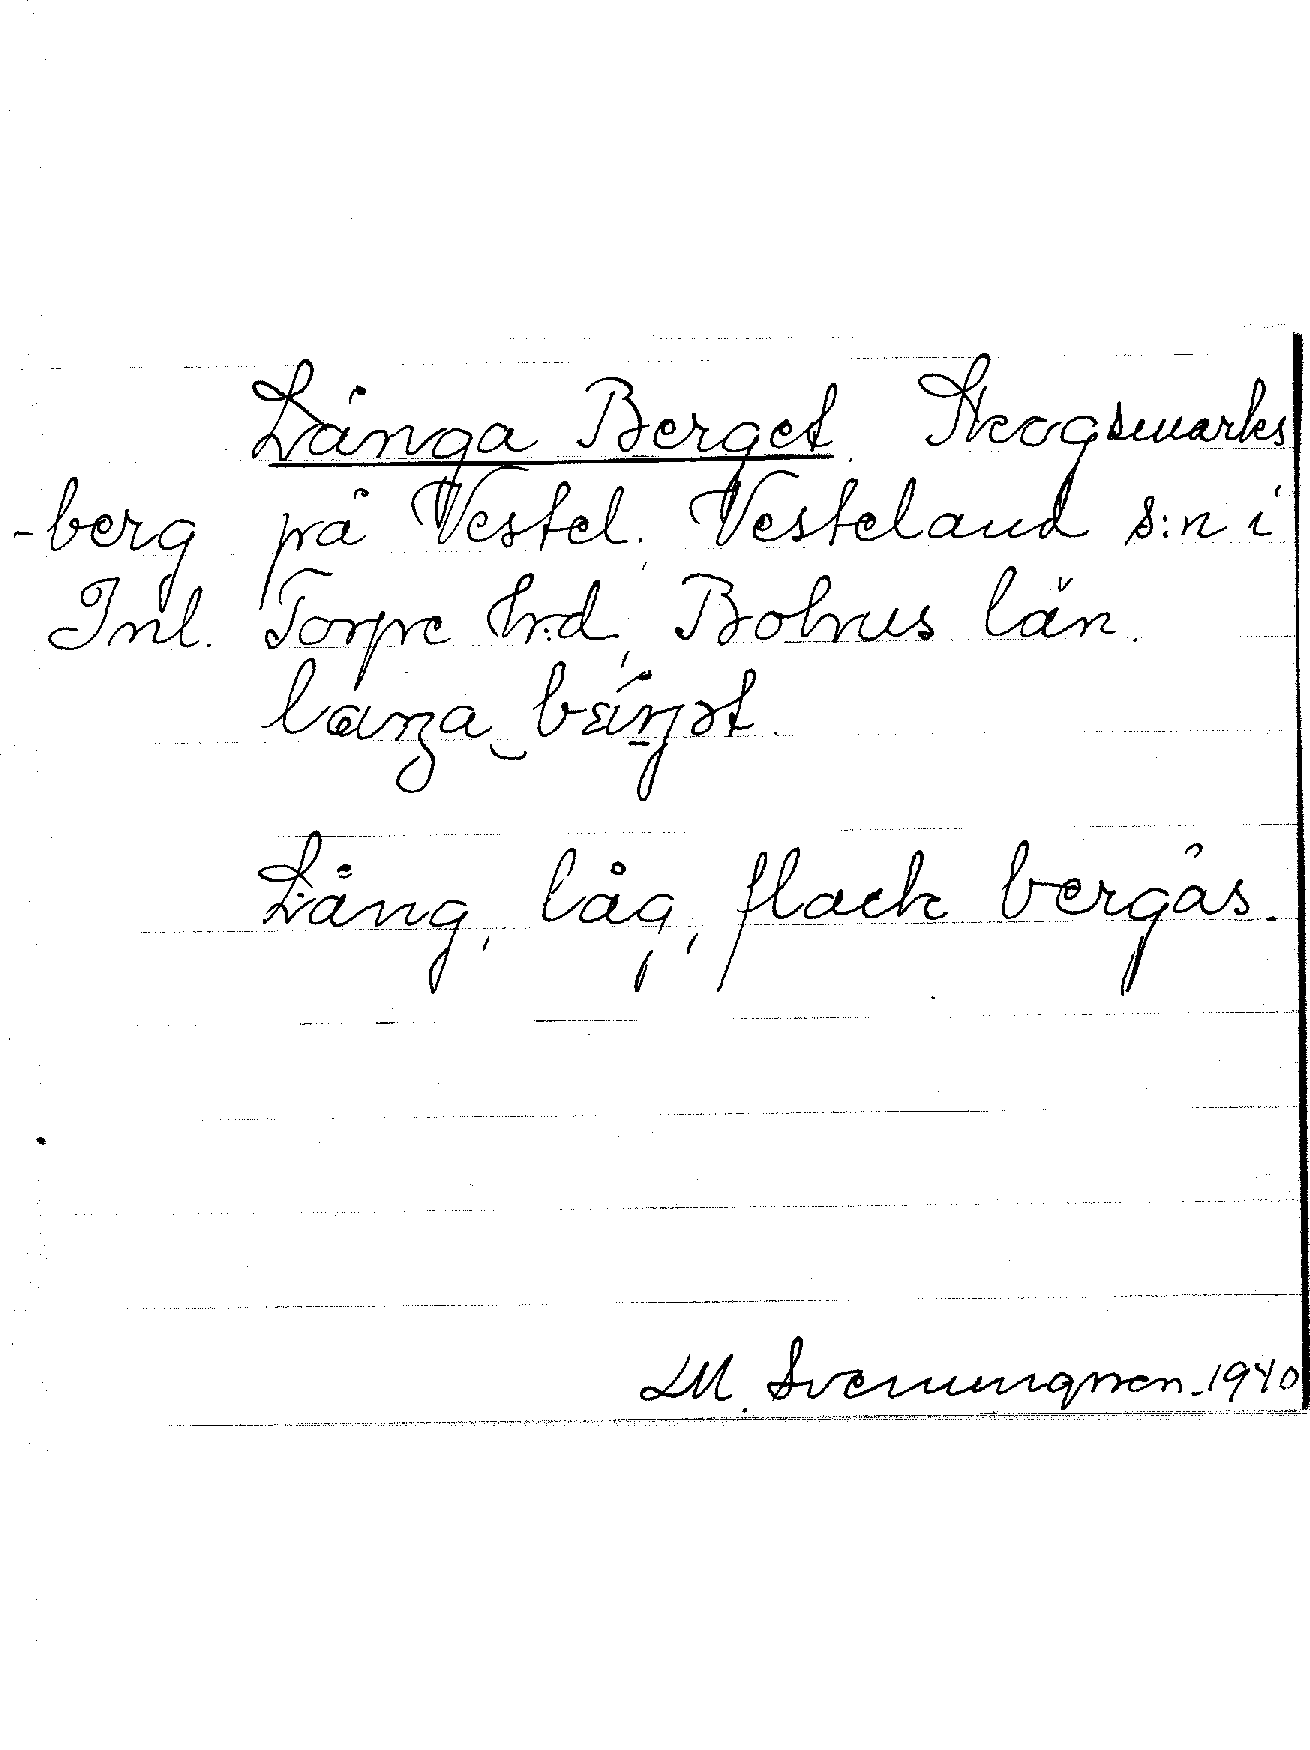 Långa Berget. Skogsmarks
-berg på Vestel. Vesteland s:n i
Inl. Torpe hrd, Bohus län.
Lång, låg, flack bergås.
LM. Svenungsson. 1940